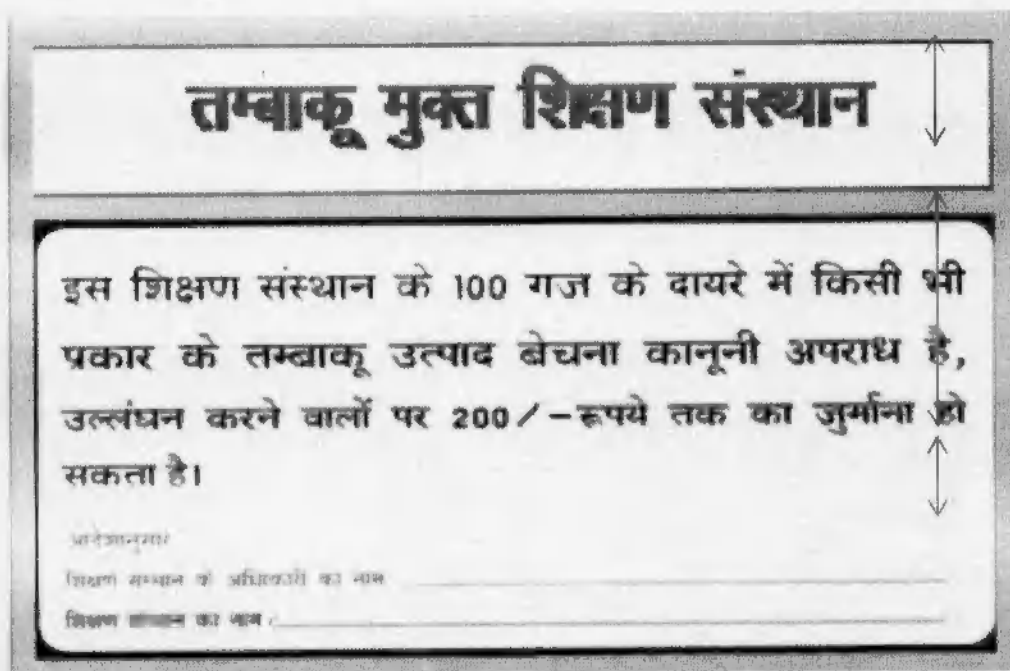 तम्बाकू मुक्त शिक्षण संस्थान
इस शिक्षण संस्थान के 100 गज के दायरे में किसी भी
प्रकार के तम्बाकू उत्पाद बेचना कानूनी अपराध है,
उल्लंघन करने वालों पर 200/-रूपये तक का जुर्माना हो
सकता है।
आदेशानुसार
शिक्षण संस्थान के अधिकारी का नाम
शिक्षण संस्थान का नाम :